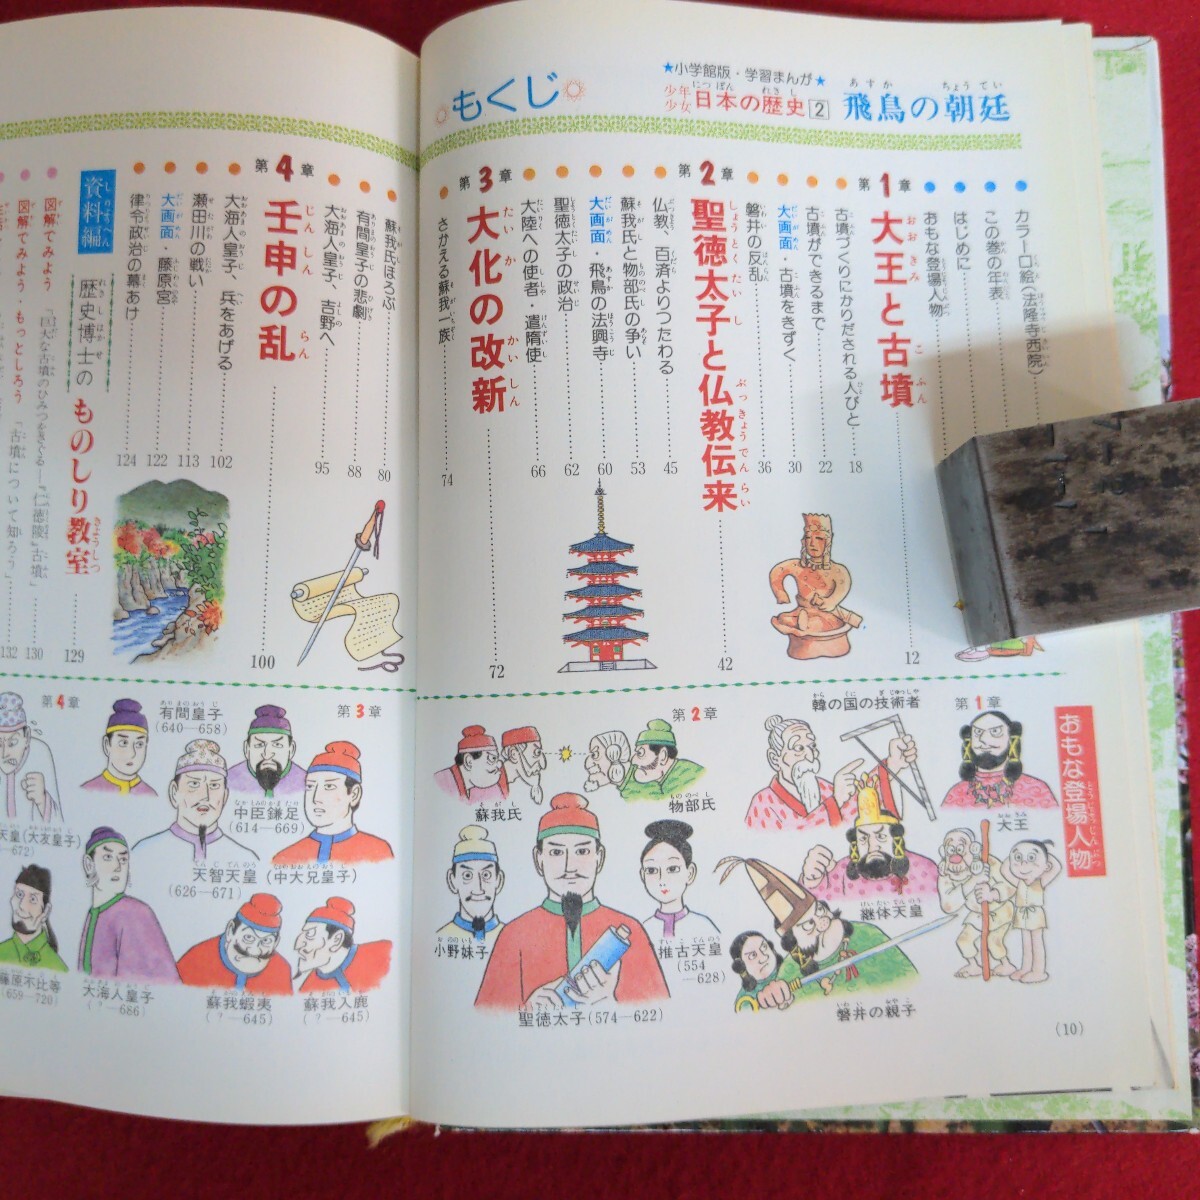 もくじ
★小学館版・学習まんが★
少年少女日本の歴史2 飛鳥の朝廷
カラー口絵〈法隆寺西院〉
この巻の年表
はじめに
おもな登場人物
第1章 大王と古墳 12
古墳づくりにかりだされる人びと 18
古墳ができるまで 22
大画面・古墳をきずく 30
磐井の反乱 36
第2章 聖徳太子と仏教伝来 42
仏教、百済よりつたわる 45
蘇我氏と物部氏の争い 53
大画面・飛鳥の法興寺 60
聖徳太子の政治 62
大陸への使者・遣隋使 66
第3章 大化の改新 72
さかえる蘇我一族 74
蘇我氏ほろぶ 80
有間皇子の悲劇 88
大海人皇子、吉野へ 95
第4章 壬申の乱 100
大海人皇子、兵をあげる 102
瀬田川の戦い 113
大画面・藤原宮 122
律令政治の幕あけ 124
資料編 歴史博士のものしり教室 129
図解でみよう 「巨大な古墳のひみつをさぐる―『仁徳陵』古墳」 130
図解でみよう・もっとしろう 「古墳について知ろう」 132
おもな登場人物
第1章
大王
韓の国の技術者
継体天皇
磐井の親子
第2章
物部氏
蘇我氏
推古天皇
(554—628)
小野妹子
聖徳太子(574—622)
第3章
有間皇子
(640—658)
中臣鎌足
(614—669)
天智天皇(中大兄皇子)
(626—671)
蘇我蝦夷
(?—645)
蘇我入鹿
(?—645)
第4章
天皇(大友皇子)
—672)
大海人皇子
(?—686)
藤原不比等
(659—720)
(10)